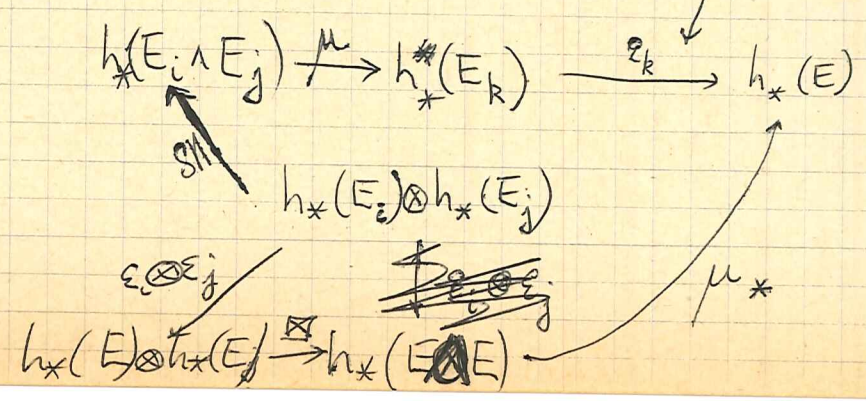 h_*(E_i ∧ E_j) μ → h_*^*(E_k) ε_k → h_*(E)
SM
h_*(E_i) ⊗ h_*(E_j)
ε_i ⊗ ε_j
μ_*
h_*(E) ⊗ h_*(E) ⊠ → h_*(E ∧ E)